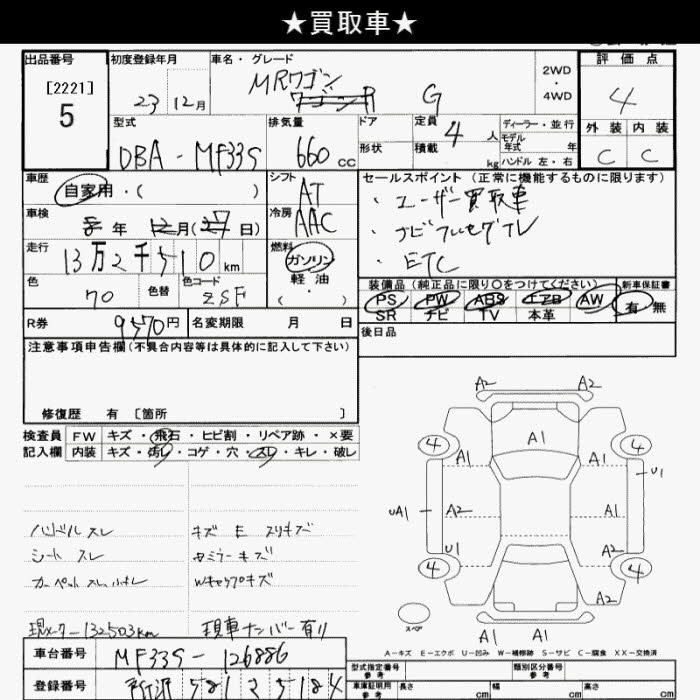 ★買取車★
出品番号
[2221]
5
初度登録年月
23 12月
車名・グレード
MRワゴン
G
2WD
・
4WD
評価点
4
外装 内装
C C
型式
DBA-MF33S
排気量
660cc
ドア
形状
定員
4人
積載
kg
ディーラー・並行
モデル
年式 年
ハンドル 左・右
車歴
自家用・( )
シフト
AT
セールスポイント (正常に機能するものに限ります)
・ユーザー買取車
・ナビフルセグTV
・ETC
車検
年 12月(27日)
冷房
AAC
走行
13万2千510km
燃料
ガソリン
軽油
( ・ )
色
色替
色コード
ZSF
装備品(純正品に限り〇をつけてください)
PS PW ABS エアB AW
SR ナビ TV 本革
新車保証書
有・無
R券
9570円
名変期限 月 日
後日品
注意事項申告欄(不具合内容等は具体的に記入して下さい)
修復歴 有 [箇所 ]
検査員 FW キズ・飛石・ヒビ割・リペア跡・×要
記入欄 内装 キズ・汚レ・コゲ・穴・スレ・キレ・破レ
ハンドルスレ
シートスレ
キズ E スリキズ
Wキャップキズ
現メーター132503km
現車ナンバー有り
A2 A2
A1
4 4
A1 A1
U1
UA1 A2 A1
U1 A2
4 4
A2
スペア
A1 A1
A-キズ E-エクボ U-凹み W-補修跡 S-サビ C-腐食 XX-交換済
車台番号
MF33S-126886
登録番号
新潟 581 そ 5184
型式指定番号
参考
類別区分番号
参考
車庫証明用
参考
長さ cm
幅 cm
高さ cm